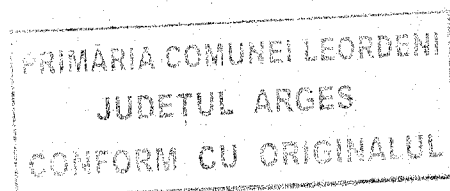 PRIMĂRIA COMUNEI LEORDENI
JUDEȚUL ARGES
CONFORM CU ORIGINALUL